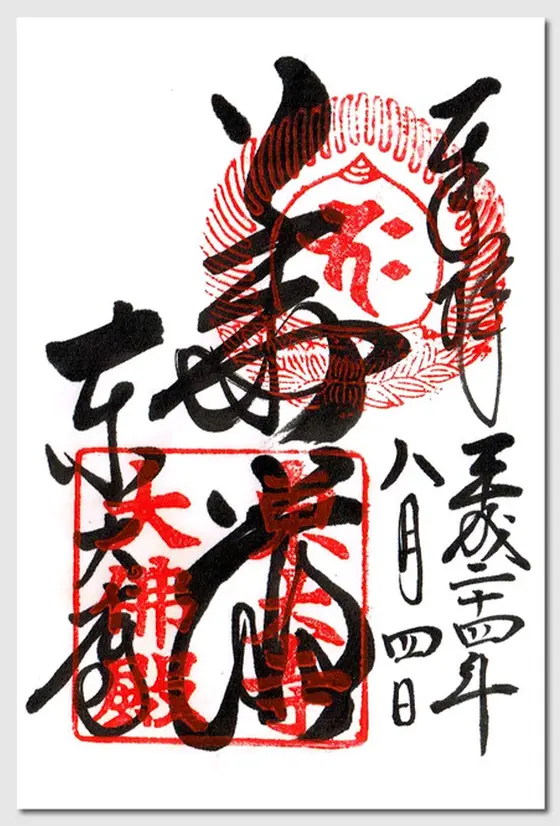 奉拝
平成二十四年
八月四日
華厳
東大寺
東大寺
大佛殿